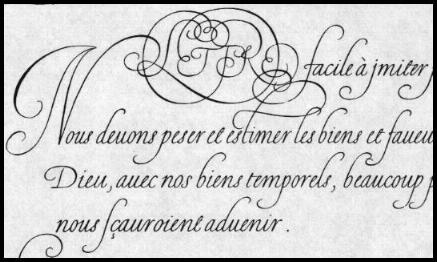 facile à jmiter
Nous deuons peser et estimer les biens et faueu
Dieu, auec nos biens temporels, beaucoup p
nous sçauroient aduenir.